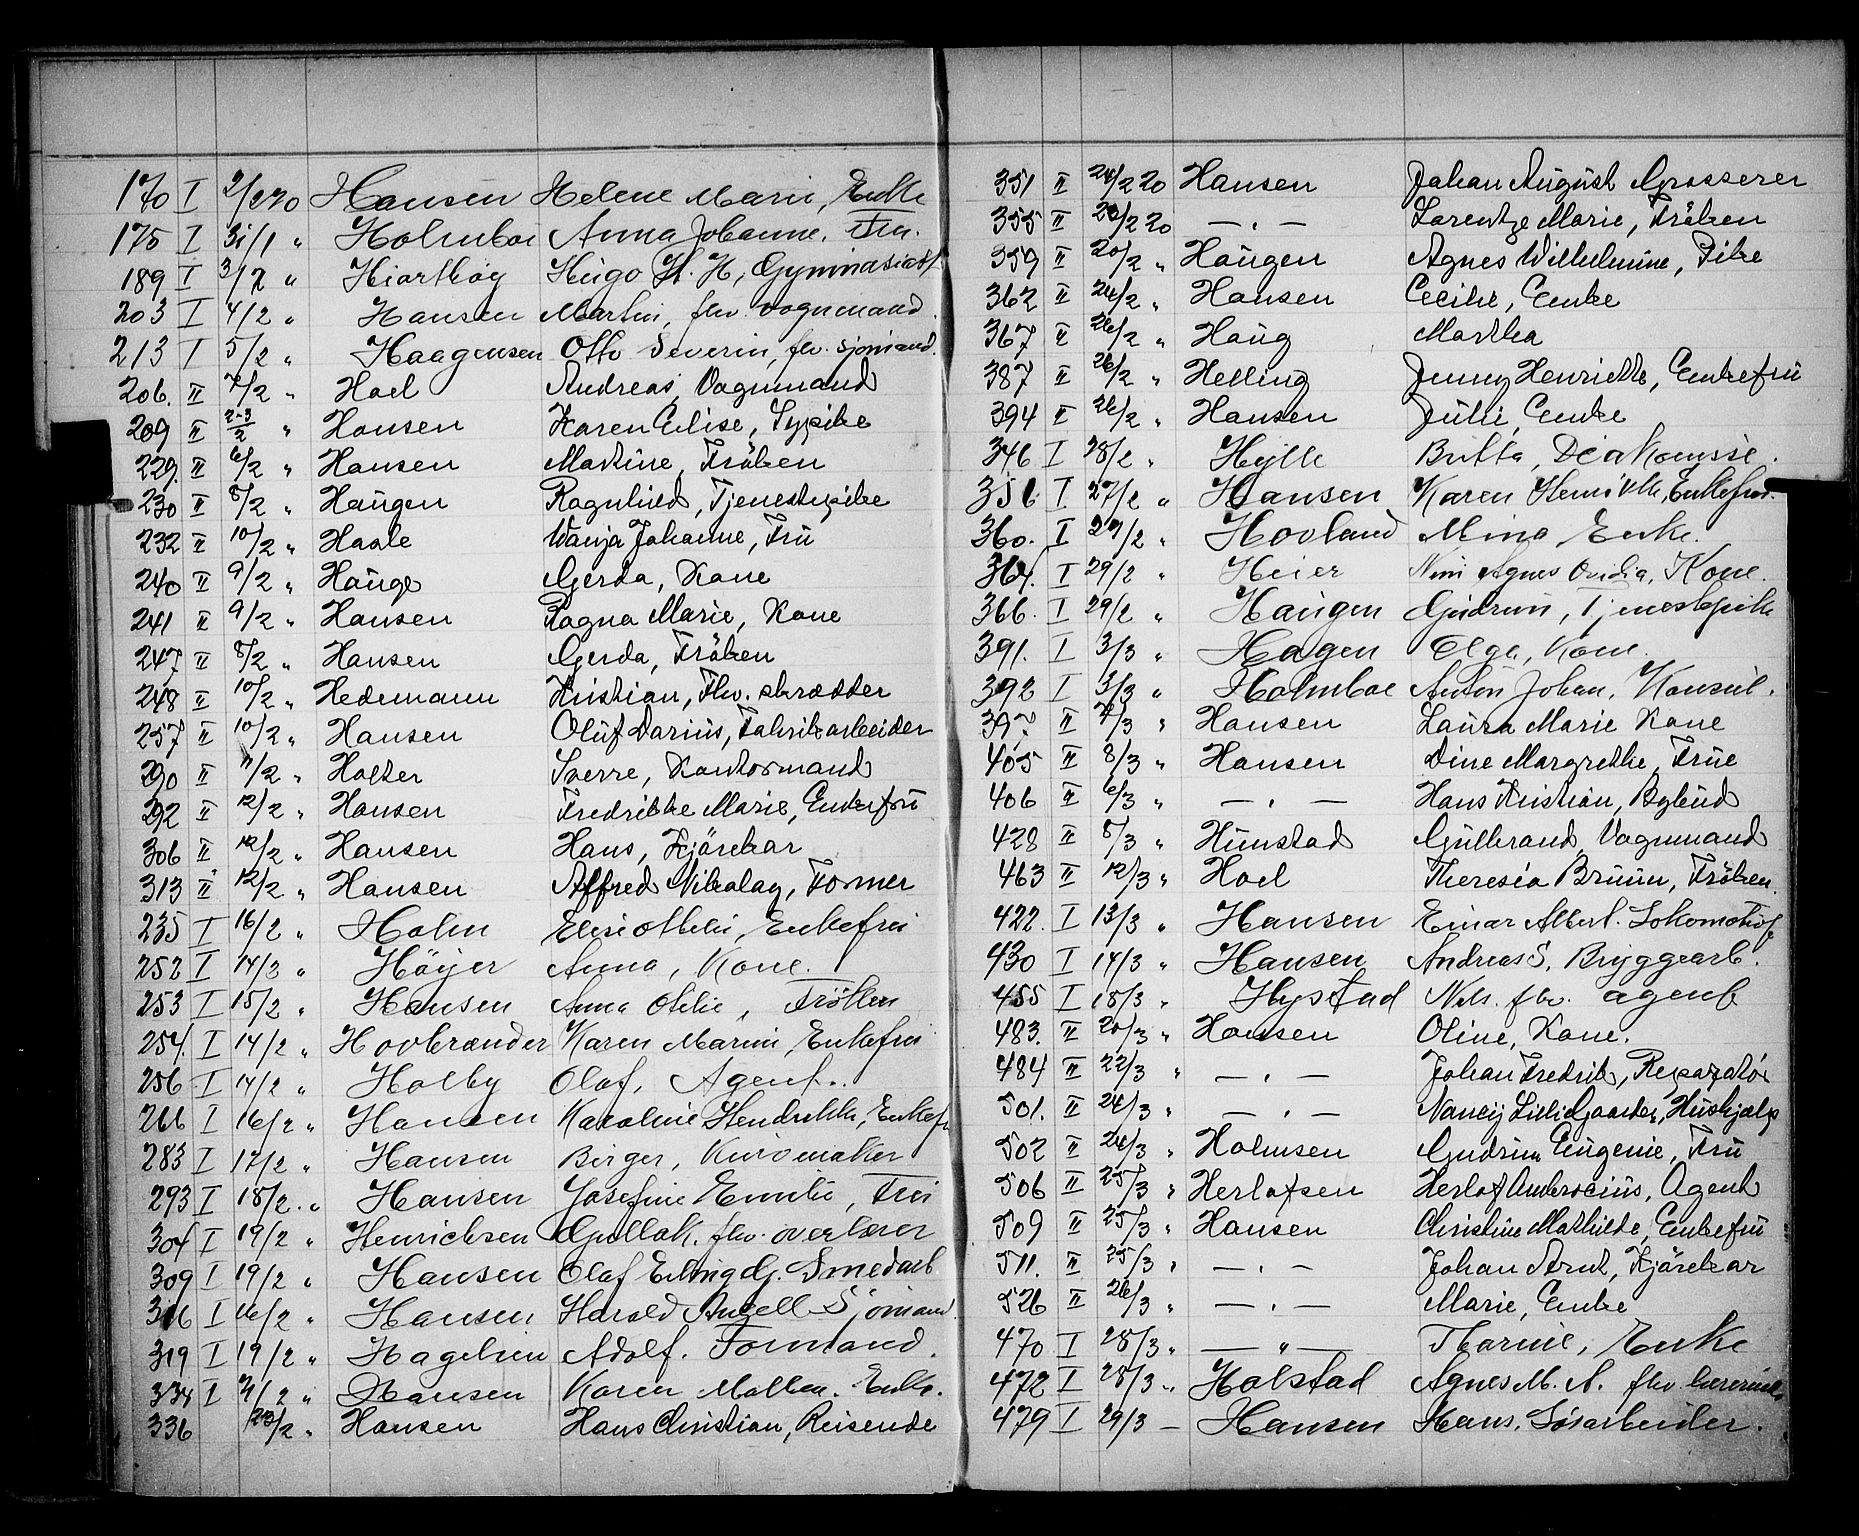 170 I 2/2 20 Hansen Helene Marie, Enke
175 I 31/1 " Holmboe Anna Johanne, Fru.
189 I 3/2 " Hiorthøy Hugo H. H, Gymnasiast
203 I 4/2 " Hansen Martin, fhv. vognmand.
213 I 5/2 " Haagensen Otto Severin, fhv. sjømand.
206. II 7/2 " Hoel Andreas, Vognmand
209 II 2-3/2 " Hansen Karen Elise, Sypike
229. II 6/2 " Hansen Martine, Fröken
230 II 8/2 " Haugen Ragnhild, Tjenestepike
232 II 10/2 " Hasle Wanja Johanne, Fru
240 II 9/2 " Hauge Gerda, Kone
241 II 9/2 " Hansen Ragna Marie, Kone
247 II 8/2 " Hansen Gerda, Fröken
248 II 10/2 " Hedemann Kristian, Fhv. skrædder
257 II 10/2 " Hansen Oluf Darius, Fabrikarbeider
290 II 11/2 " Holter Sverre, Kontormand
292 II 12/2 " Hansen Fredrikke Marie, Enkefru
306 II 12/2 " Hansen Hans, Kjörekar
313 II 12/2 " Hansen Alfred Nikolay, Former
235 I 16/2 " Holm Elise Othelie, Enkefru
252 I 14/3 " Höyer Anna, Kone.
253 I 15/2 " Hansen Anna Otilie, Fröken
254. I 14/2 " Hovbrænder Karen Marine, Enkefru
256 I 14/2 " Holby Olaf, Agent..
266 I 16/2 " Hansen Karoline Hendrikke, Enkefr
283 I 17/2 " Hansen Birger, Kurvmaker
293 I 18/2 " Hansen Josefine Emilie, Fru
304 I 19/2 " Henrichsen Gullak. fhv. overlærer
309 I 19/2 " Hansen Olaf Erling G. Smedarb
316 I 16/2 " Hansen Harald Angell Sjømand.
319 I 19/2 " Hagelien Adolf. Formand.
334 I 21/2 " Hansen Karen Mathea. Enke.
336 23/2 " Hansen Hans Christian, Reisende
351 II 24/2 20 Hansen Johan August Grosserer
355 II 20/2 20 — " — Lorentze Marie, Fröken
359 II 20/2 " Haugen Agnes Wilhelmine, Pike
362 II 24/2 " Hansen Cecilie, Enke
367 II 26/2 " Haug Martha
387 II 26/2 " Helling Jenny Henriette, Enkefru
394 II 26/2 " Hansen Julie, Enke
346 I 28/2 " Hylle Britta, Diakonisse.
351. I 27/2 " Hansen Karen Henrikke, Enkefru.
360. I 29/2 " Hovland Mina Enke.
364. I 29/2 " Heier Nini Agnes Ovidia, Kone.
366. I 29/2 " Haugen Gudrun, Tjenestepike
391. I 3/3 " Hagen Olga, Kone.
392 I 3/3 " Holmboe Anton Johan, Konsul.
397. II 7/3 " Hansen Laura Marie Kone
405 II 8/3 " Hansen Dine Margrethe, Frue
406 II 6/3 " — " — Hans Kristian, Bybud
428 II 8/3 " Hunstad Gulbrand, Vognmand
463 II 12/3 " Hoel Theresia Bruun, Fröken.
422. I 13/3 " Hansen Einar Albert. Lokomotivf.
430 I 14/3 " Hansen Andreas S. Bryggearb.
455 I 18/3 " Hystad Nels. fhv. agent
483. II 20/3 " Hansen Oline, Kone.
484 II 22/3 " — " — Johan Fredrik, Reparatör
501. II 24/3 " — " — Nancy Lilli Gaarder, Hushjelp
502 II 24/3 " Holmsen Gudrun Eugenie, Fru
506 II 25/3 " Herlofsen Herlof Ambrosius, Agent
509 II 25/3 " Hansen Christine Mathilde, Enkefru
511. II 25/3 " — " — Johan Arnt, Kjörekar
526 II 26/3 " — " — Marie, Enke
470 I 28/3 " — " — Tharine, Enke
472 I 28/3 " Holstad Agnes M. A. fhv. lærerinde
479 I 29/3 — Hansen Hans. Løsarbeider.